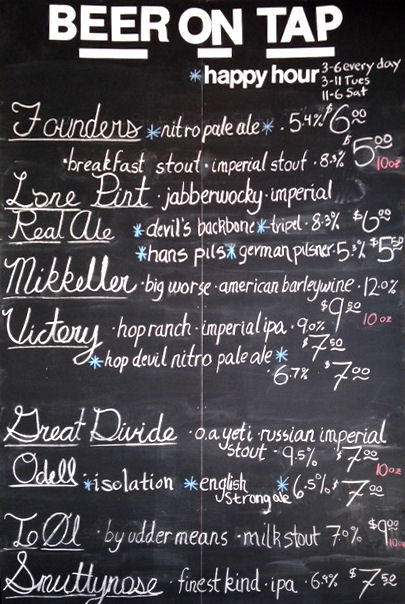 BEER ON TAP
*happy hour 3-6 every day
3-11 Tues
11-6 Sat
Founders *nitro pale ale* . 5.4% $6.00
·breakfast stout · imperial stout · 8.3% $5.00 10oz
Lone Pint · jabberwocky · imperial
Real Ale *devil's backbone* tripel · 8.3% $6.00
*hans pils* german pilsner · 5.3% $5.50
Mikkeller · big worse · american barleywine · 12.0%
$9.50 10 oz
Victory · hop ranch · imperial ipa · 9.0% $7.50
*hop devil nitro pale ale*
·6.7% $7.00
Great Divide · o.a. yeti · russian imperial
stout · 9.5% $7.00 10oz
Odell · *isolation *english
strong ale * 6.5% $7.00
To Øl · by udder means · milk stout 7.0% $9.00 10oz
Smuttynose · finest kind · ipa · 6.9% $7.50